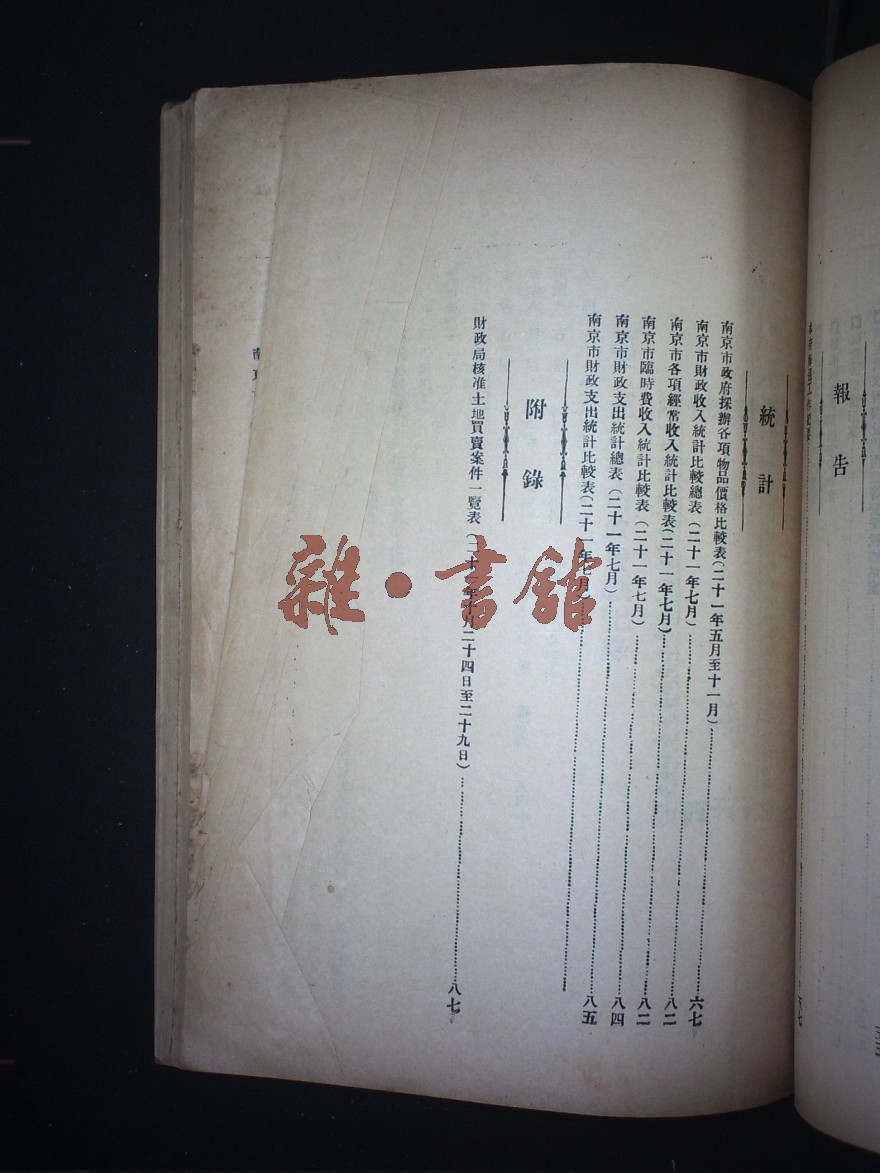 報告
統計
南京市政府採辦各項物品價格比較表(二十一年五月至十一月)……六七
南京市財政收入統計比較總表(二十一年七月)……八二
南京市各項經常收入統計比較表(二十一年七月)……八二
南京市臨時費收入統計比較表(二十一年七月)……八四
南京市財政支出統計總表(二十一年七月)……八五
南京市財政支出統計比較表(二十一年七月)……
附錄
財政局核准土地買賣案件一覽表(二十一年十月二十四日至二十九日)……八七
南京
雜·書館